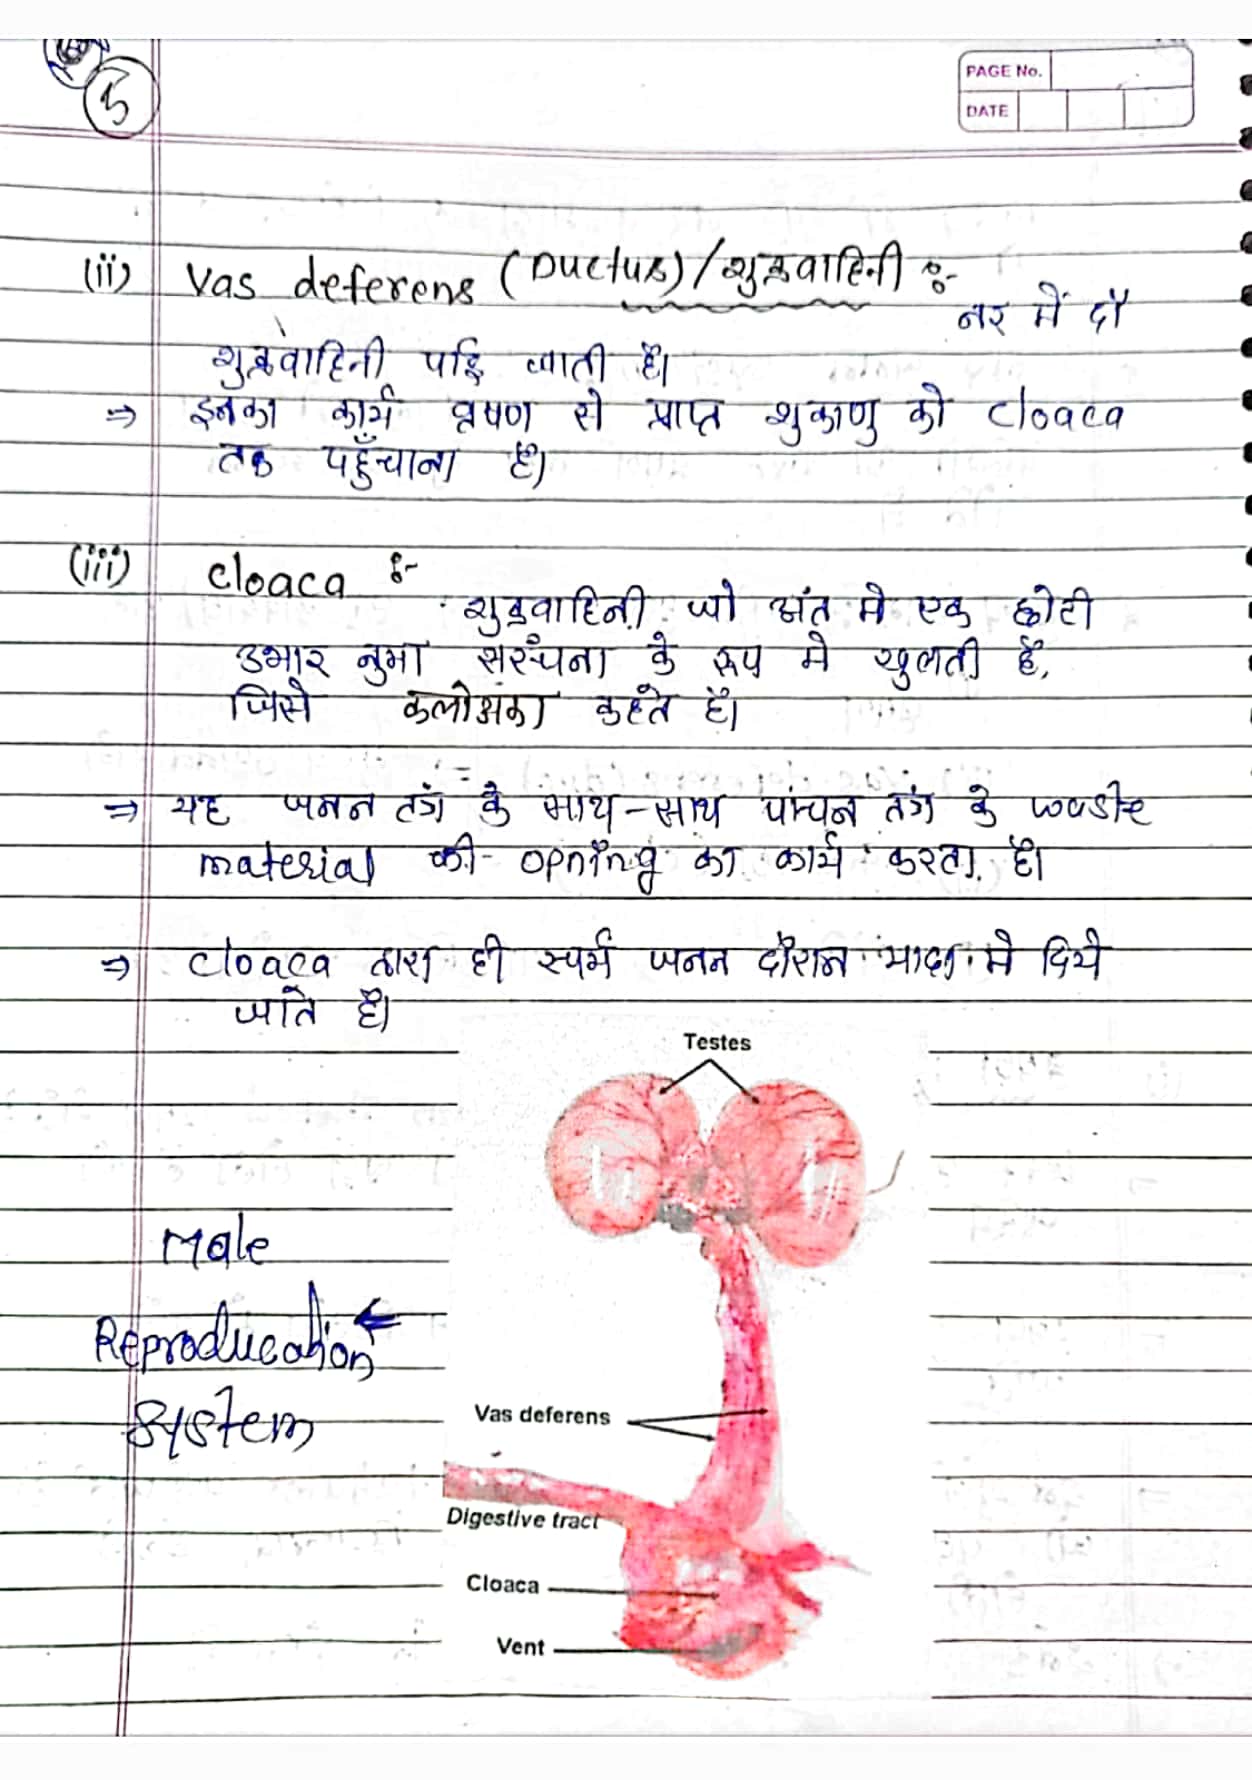 5
PAGE No.
DATE
(ii) Vas deferens (Ductus)/शुक्रवाहिनी :-
नर में दो
शुक्रवाहिनी पाई जाती है।
⇒ इनका कार्य व्रषण से प्राप्त शुकाणु को cloaca
तक पहुँचाना है।
(iii) cloaca :-
शुक्रवाहिनी जो अंत मे एक छोटी
उभार नुमा सरंचना के रूप मे खुलती हैं,
जिसे कलोअका कहते है।
⇒ यह जनन तंत्र के साथ-साथ पांचन तंत्र के waste
material की opning का कार्य करता है।
⇒ cloaca द्वारा ही स्पर्म जनन दौरान मादा मे दिये
जाते है।
Testes
Male
Reproducation
System
Vas deferens
Digestive tract
Cloaca
Vent